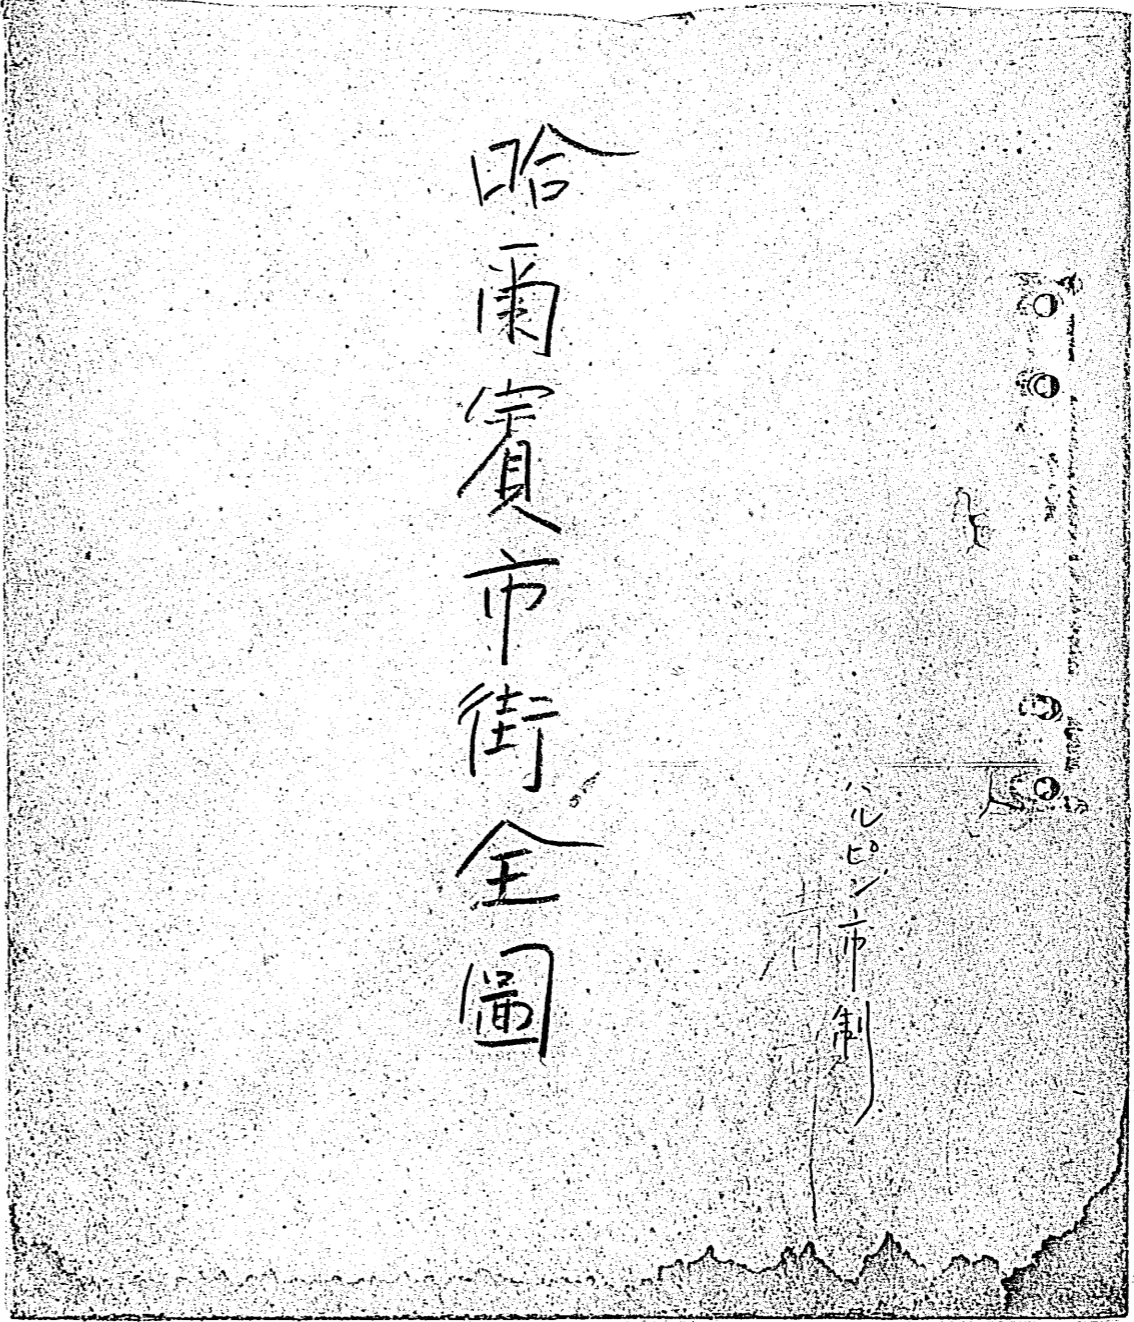 哈爾賓市街全圖
ハルピン市制